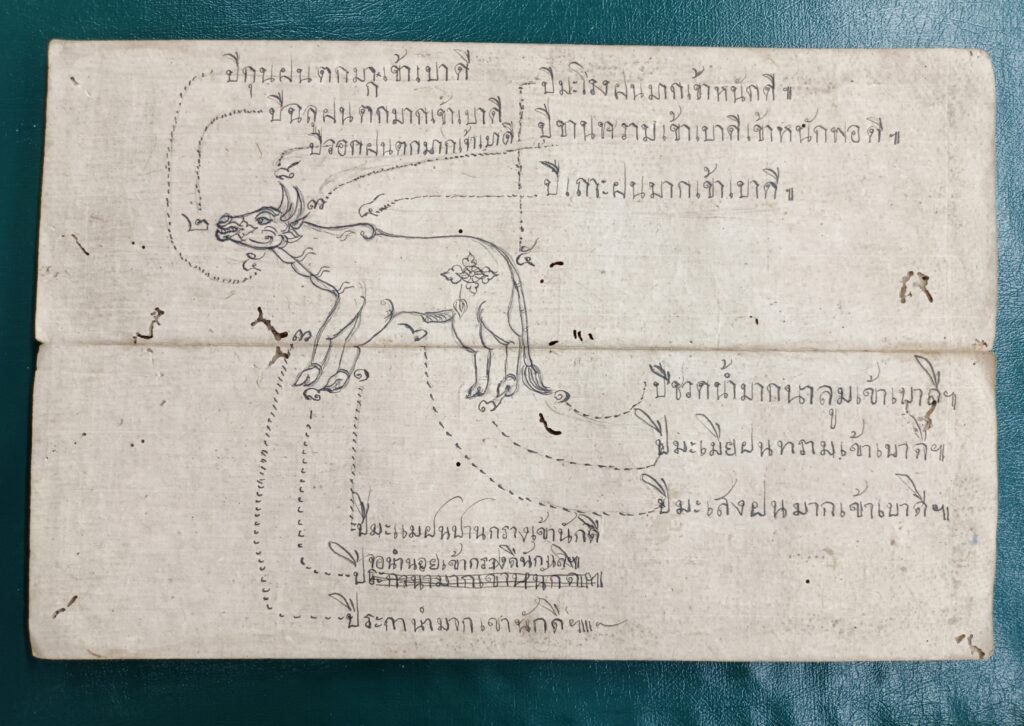 ปีกุนฝนตกมากเข้าเบาดี
ปีฉลูฝนตกมากเข้าเบาดี
ปีรอกฝนตกมากเข้าเบาดี
ปีมะโรงฝนมากเข้าหนักดี๚
ปีขานทรามเข้าเบาดีเข้าหนักพอดี๚
ปีเถาะฝนมากเข้าเบาดี๚
๘
๒
๗
๕
๓
๖
๑
ปีชวดน้ำมากนาลุมเข้าเบาดี๚
ปีมะเมียฝนทรามเข้าเบาดี๚
ปีมะเสงฝนมากเข้าเบาดี๚
ปีมะแมฝนปานกรางเข้านักดี
ปีจอน้ำนอยเข้ากรางดีนักแล๚
ปีระกานำมากเขานักดี๚